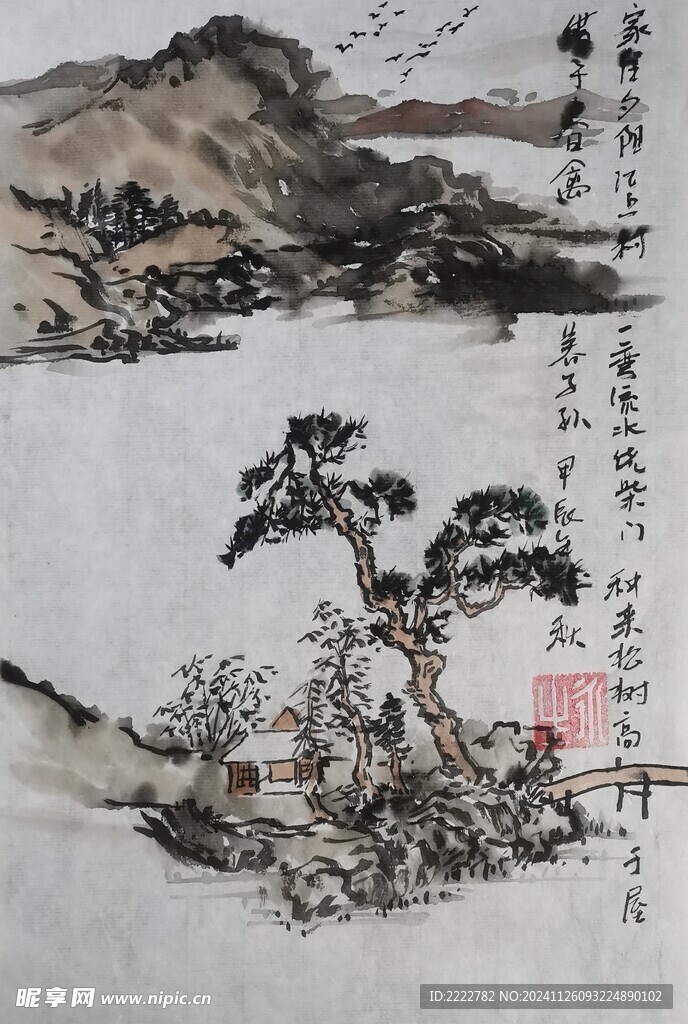 家住夕阳江上村 一弯流水绕柴门 种来松树高于屋
借于春禽养子孙 甲辰年秋
昵享网 www.nipic.cn
ID:2222782 NO:20241126093224890102